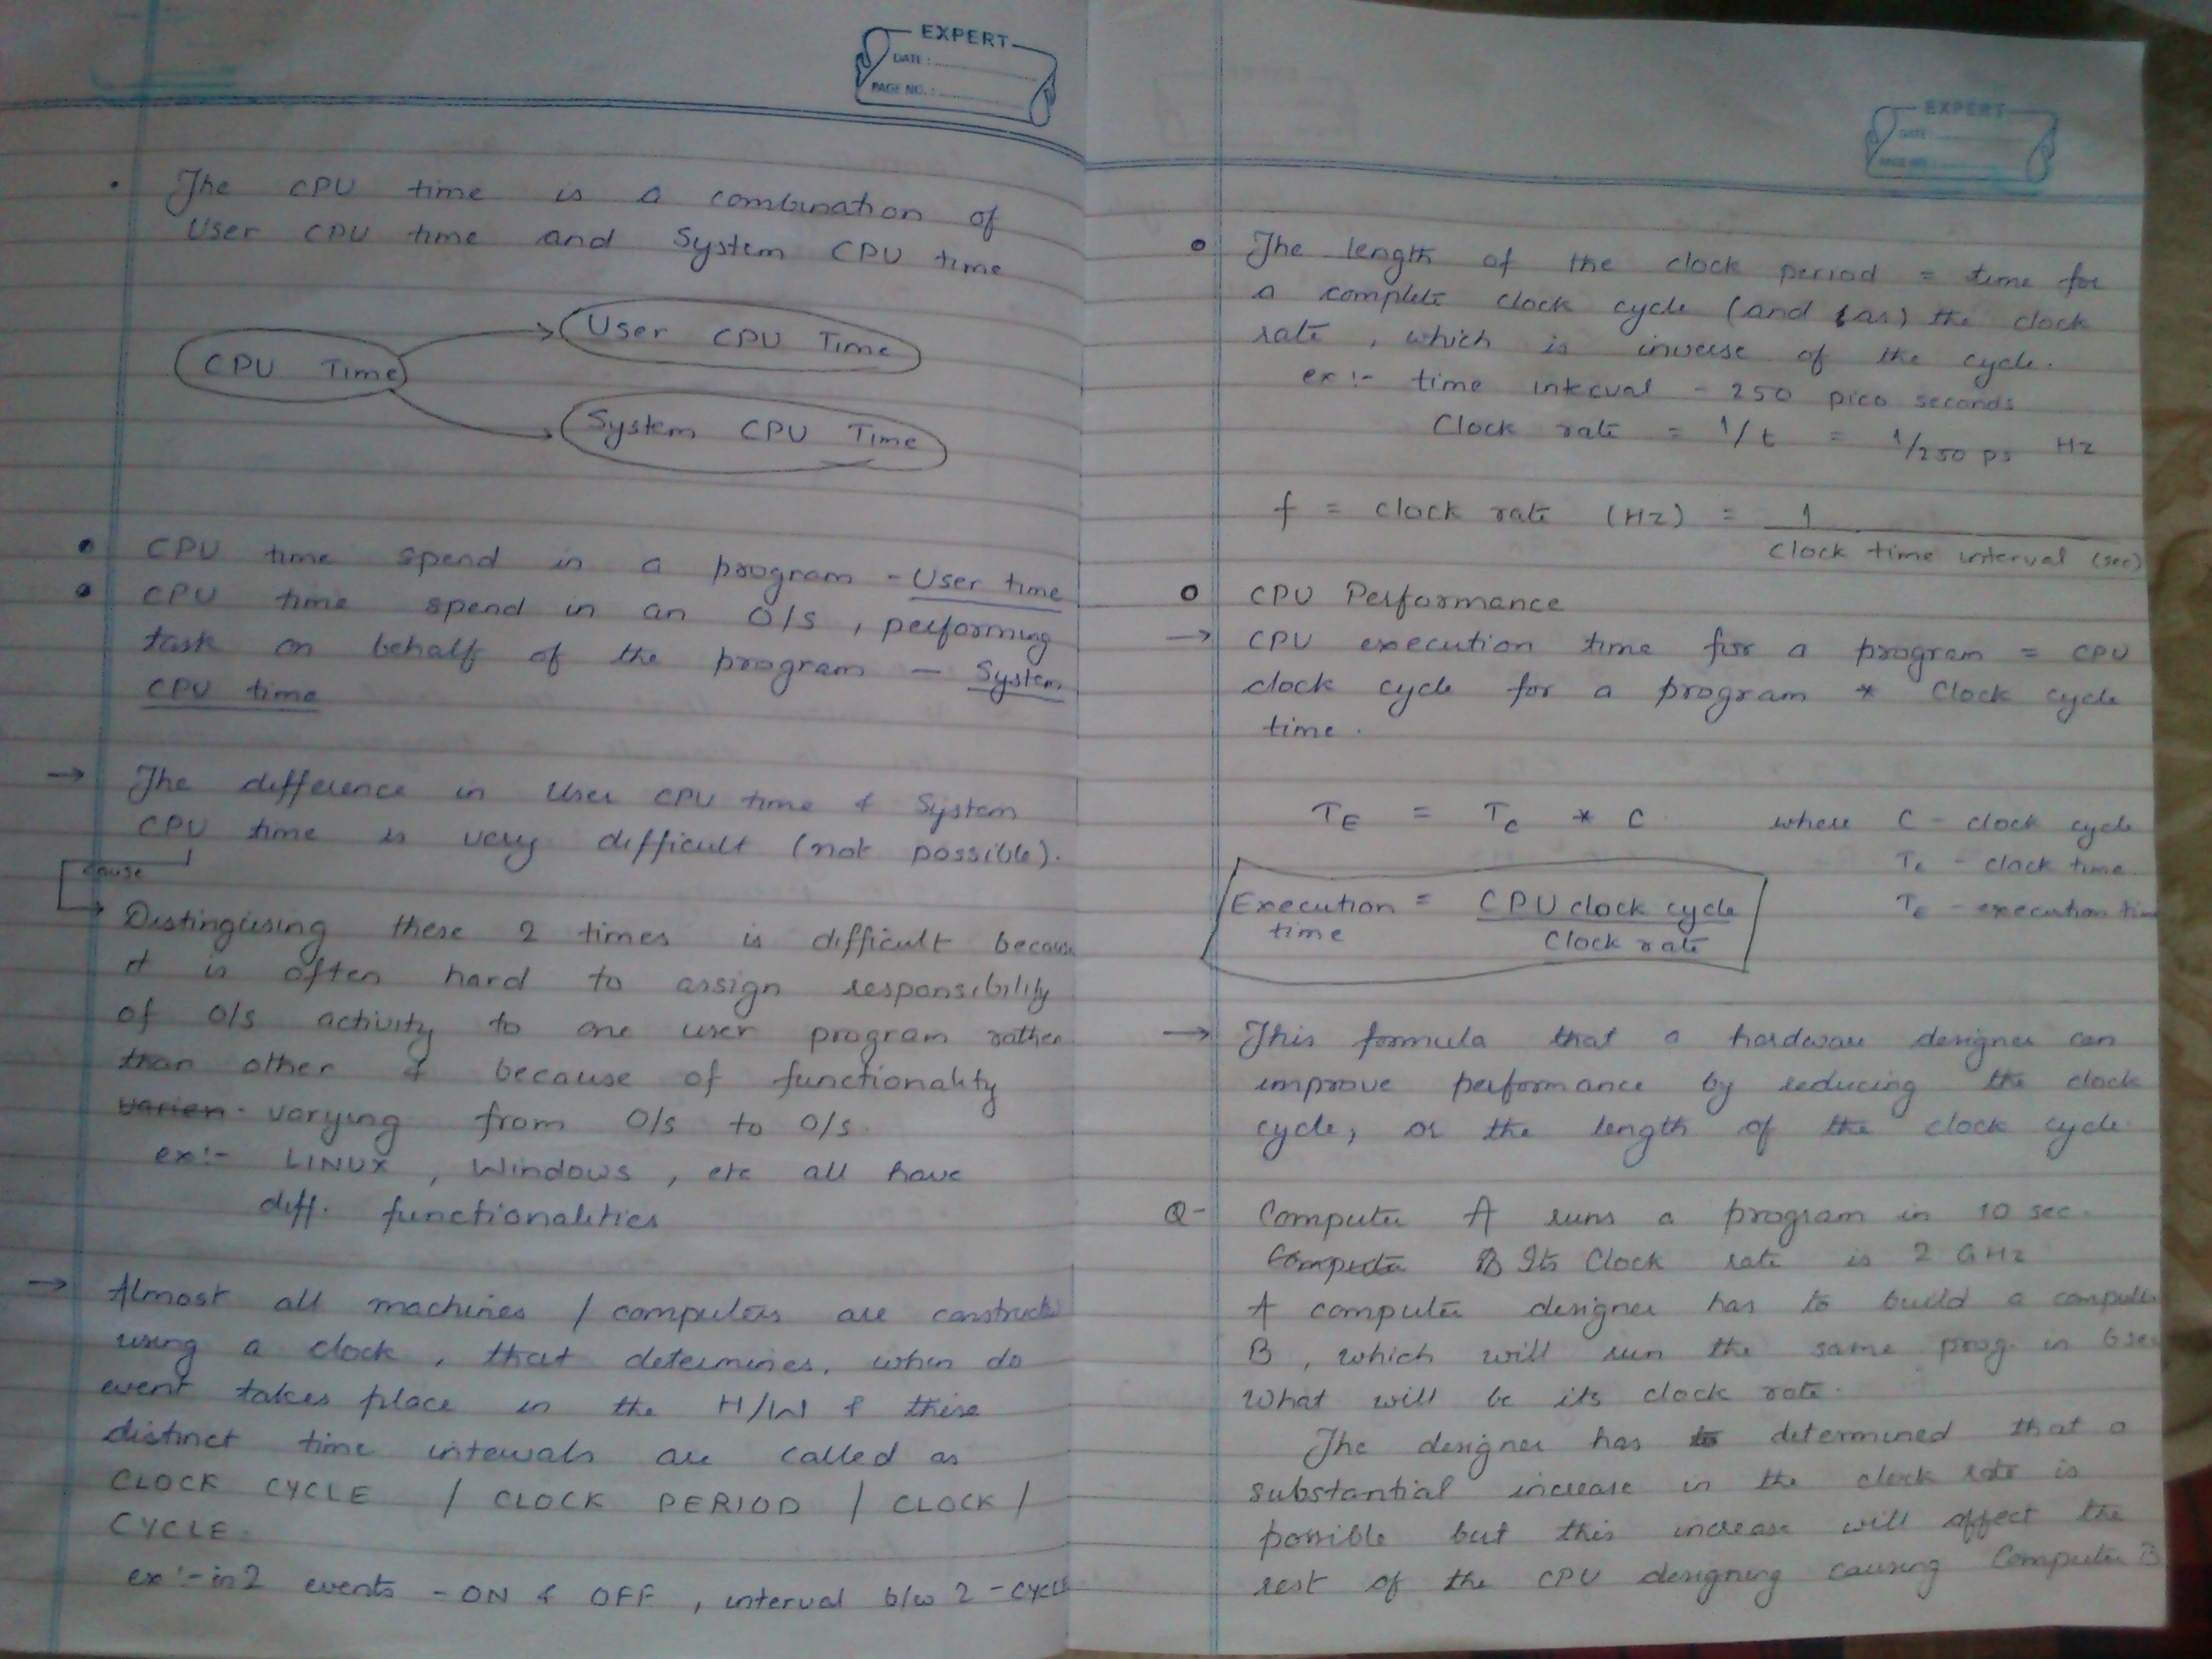 EXPERT
DATE :
PAGE NO. :
• The CPU time is a combination of
User CPU time and System CPU time
CPU Time
User CPU Time
System CPU Time
• CPU time spend in a program - User time
• CPU time spend in an O/S , performing
task on behalf of the program - System
CPU time
→ The difference in User CPU time & System
CPU time is very difficult (not possible).
cause
→ Distingusing these 2 times is difficult because
it is often hard to assign responsibility
of O/S activity to one user program rather
than other & because of functionality
varien. varying from O/S to O/S.
ex:- LINUX , Windows , etc all have
diff. functionalities
→ Almost all machines / computers are constructed
using a clock , that determines, when do
event takes place in the H/W & these
distinct time intervals are called as
CLOCK CYCLE / CLOCK PERIOD / CLOCK /
CYCLE.
ex:- in 2 events - ON & OFF , interval b/w 2 - CYCLE
EXPERT
DATE
PAGE NO.
• The length of the clock period = time for
a complete clock cycle (and (as) the clock
rate , which is inverse of the cycle.
ex:- time interval - 250 pico seconds
Clock rate = 1/t = 1/250 ps Hz
f = clock rate (Hz) = 1
Clock time interval (sec)
• CPU Performance
→ CPU execution time for a program = CPU
clock cycle for a program * Clock cycle
time.
TE = Tc * C where C - clock cycle
Tc - clock time
TE - execution time
Execution time = CPU clock cycle
Clock rate
→ This formula that a hardware designer can
improve performance by reducing the clock
cycle, or the length of the clock cycle.
Q- Computer A runs a program in 10 sec.
Computer B Its Clock rate is 2 GHz
A computer designer has to build a computer
B , which will run the same prog. in 6 sec
What will be its clock rate.
The designer has to determined that a
substantial increase in the clock rate is
possible but this increase will affect the
rest of the CPU designing causing Computer B